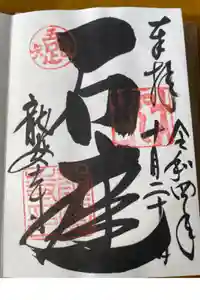 奉拝
令和四年
十月二十
石庭
龍安寺